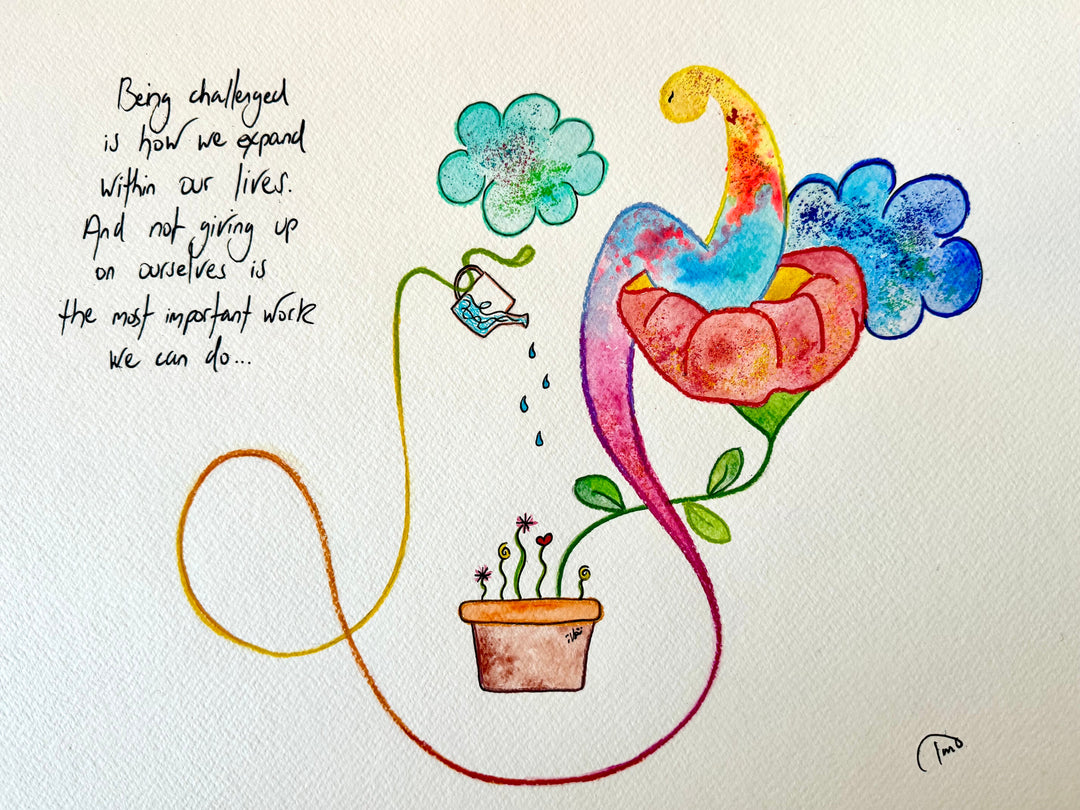 Being challenged
is how we expand
within our lives.
And not giving up
on ourselves is
the most important work
we can do...